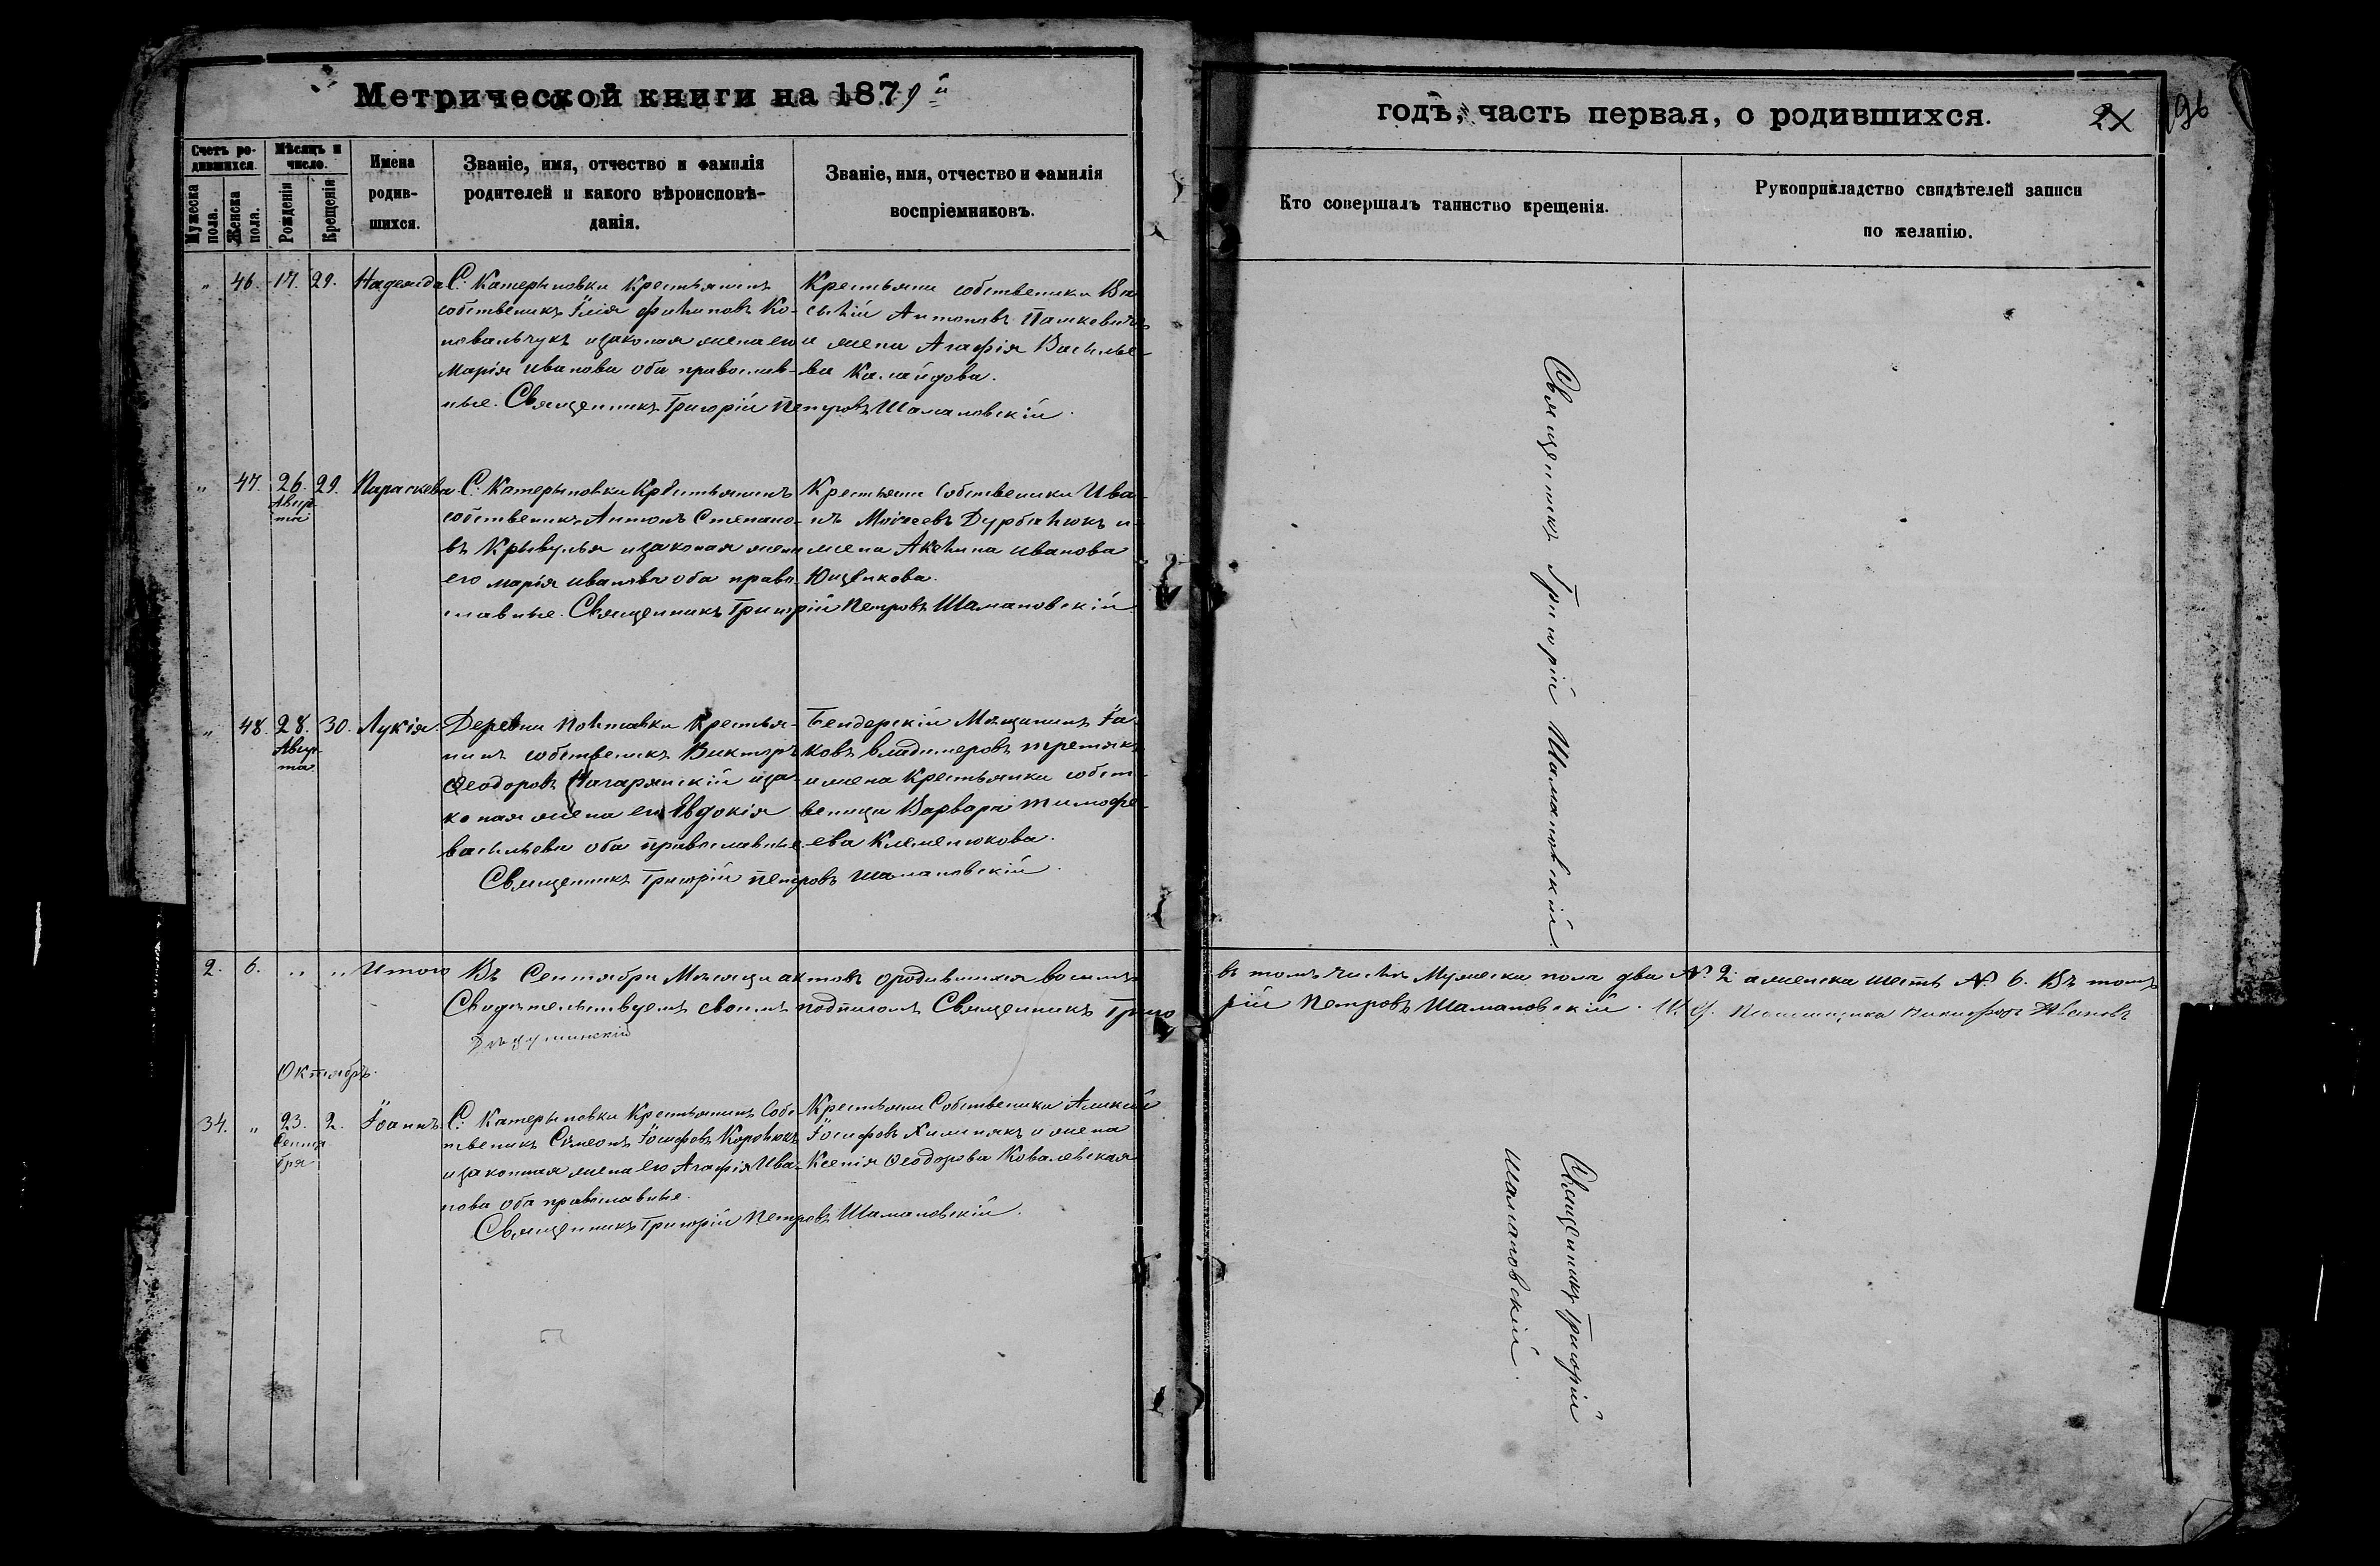 Метрической книги на 1879й
годъ, часть первая, о родившихся.
2х 96
Счетъ родившихся.
Мужеска пола.
Женска пола.
Мѣсяцъ и число.
Рожденія
Крещенія
Имена родившихся.
Званіе, имя, отчество и фамилія
родителей и какого вѣроисповѣ-
данія.
Званіе, имя, отчество и фамилія
воспріемниковъ.
Кто совершалъ таинство крещенія.
Рукоприкладство свидѣтелей записи
по желанію.
" 46. 17. 29. Надежда
С. Катериновки Крестьянинъ
собственикъ Їлія филиповъ Ко-
новальчукъ изаконая жена его
Марія иванова оба православ-
ные. Священникъ Григорій Петровъ Шамановскій.
Крестьяни собственики Ва
силій Антоновъ Пашкевичъ
и жена Агафія Василье-
ва Калайдова.
" 47. 26. Авгу-ста 29. Параскева
С. Катериновки Крестьянинъ
собственикъ Антонъ Степано-
въ Кривулья изаконая жена
его марія иванова оба право-
славные. Священникъ Григорій Петровъ Шамановскій
Крестьяни Собственики Ива-
нъ Моисеевъ Дурбалюкъ и
жена Акелина иванова
Ющенкова.
" 48. 28. Авгу-ста 30. Лукія.
Деревни Полтавки Крестья-
нинъ собственикъ Викторъ
Ѳеодоровъ Нагарянскій иза-
коная жена его Евдокія
васильева оба православные.
Священникъ Григорій петровъ Шамановскій.
Бендерскій Мѣщанинъ Їа-
ковъ владимеровъ третякъ
и жена Крестьянка собст-
веница Варвара тимофе-
ева Клеменюкова.
Священникъ Григорій Шамановскій.
2. 6. " " Итого Въ Сентябри Мѣсяци актовъ ородившихся восимъ
въ томъ числѣ Мужеска пола два №. 2 аженска шесть №. 6. Въ томъ
Свидѣтельствуемъ своимъ подписомъ Священникъ Григо
рій Петровъ Шамановскій. И. д. Псаломщика Никифоръ Ивановъ
Октябрь.
34. " 23. Сентя-бря 2. Їоаннъ.
С. Катериновки Крестьянинъ Собс-
твеникъ Сѵмеонъ Їосифовъ Королюкъ
изаконная жена его Агафія Ива-
нова оба православные.
Священникъ Григорій Петровъ Шамановскій.
Крестьяни Собственики Алексій
Їосифовъ Хилинякъ и жена
Ксенія Ѳеодорова Ковалевская
Священникъ Григорій
Шамановскій.